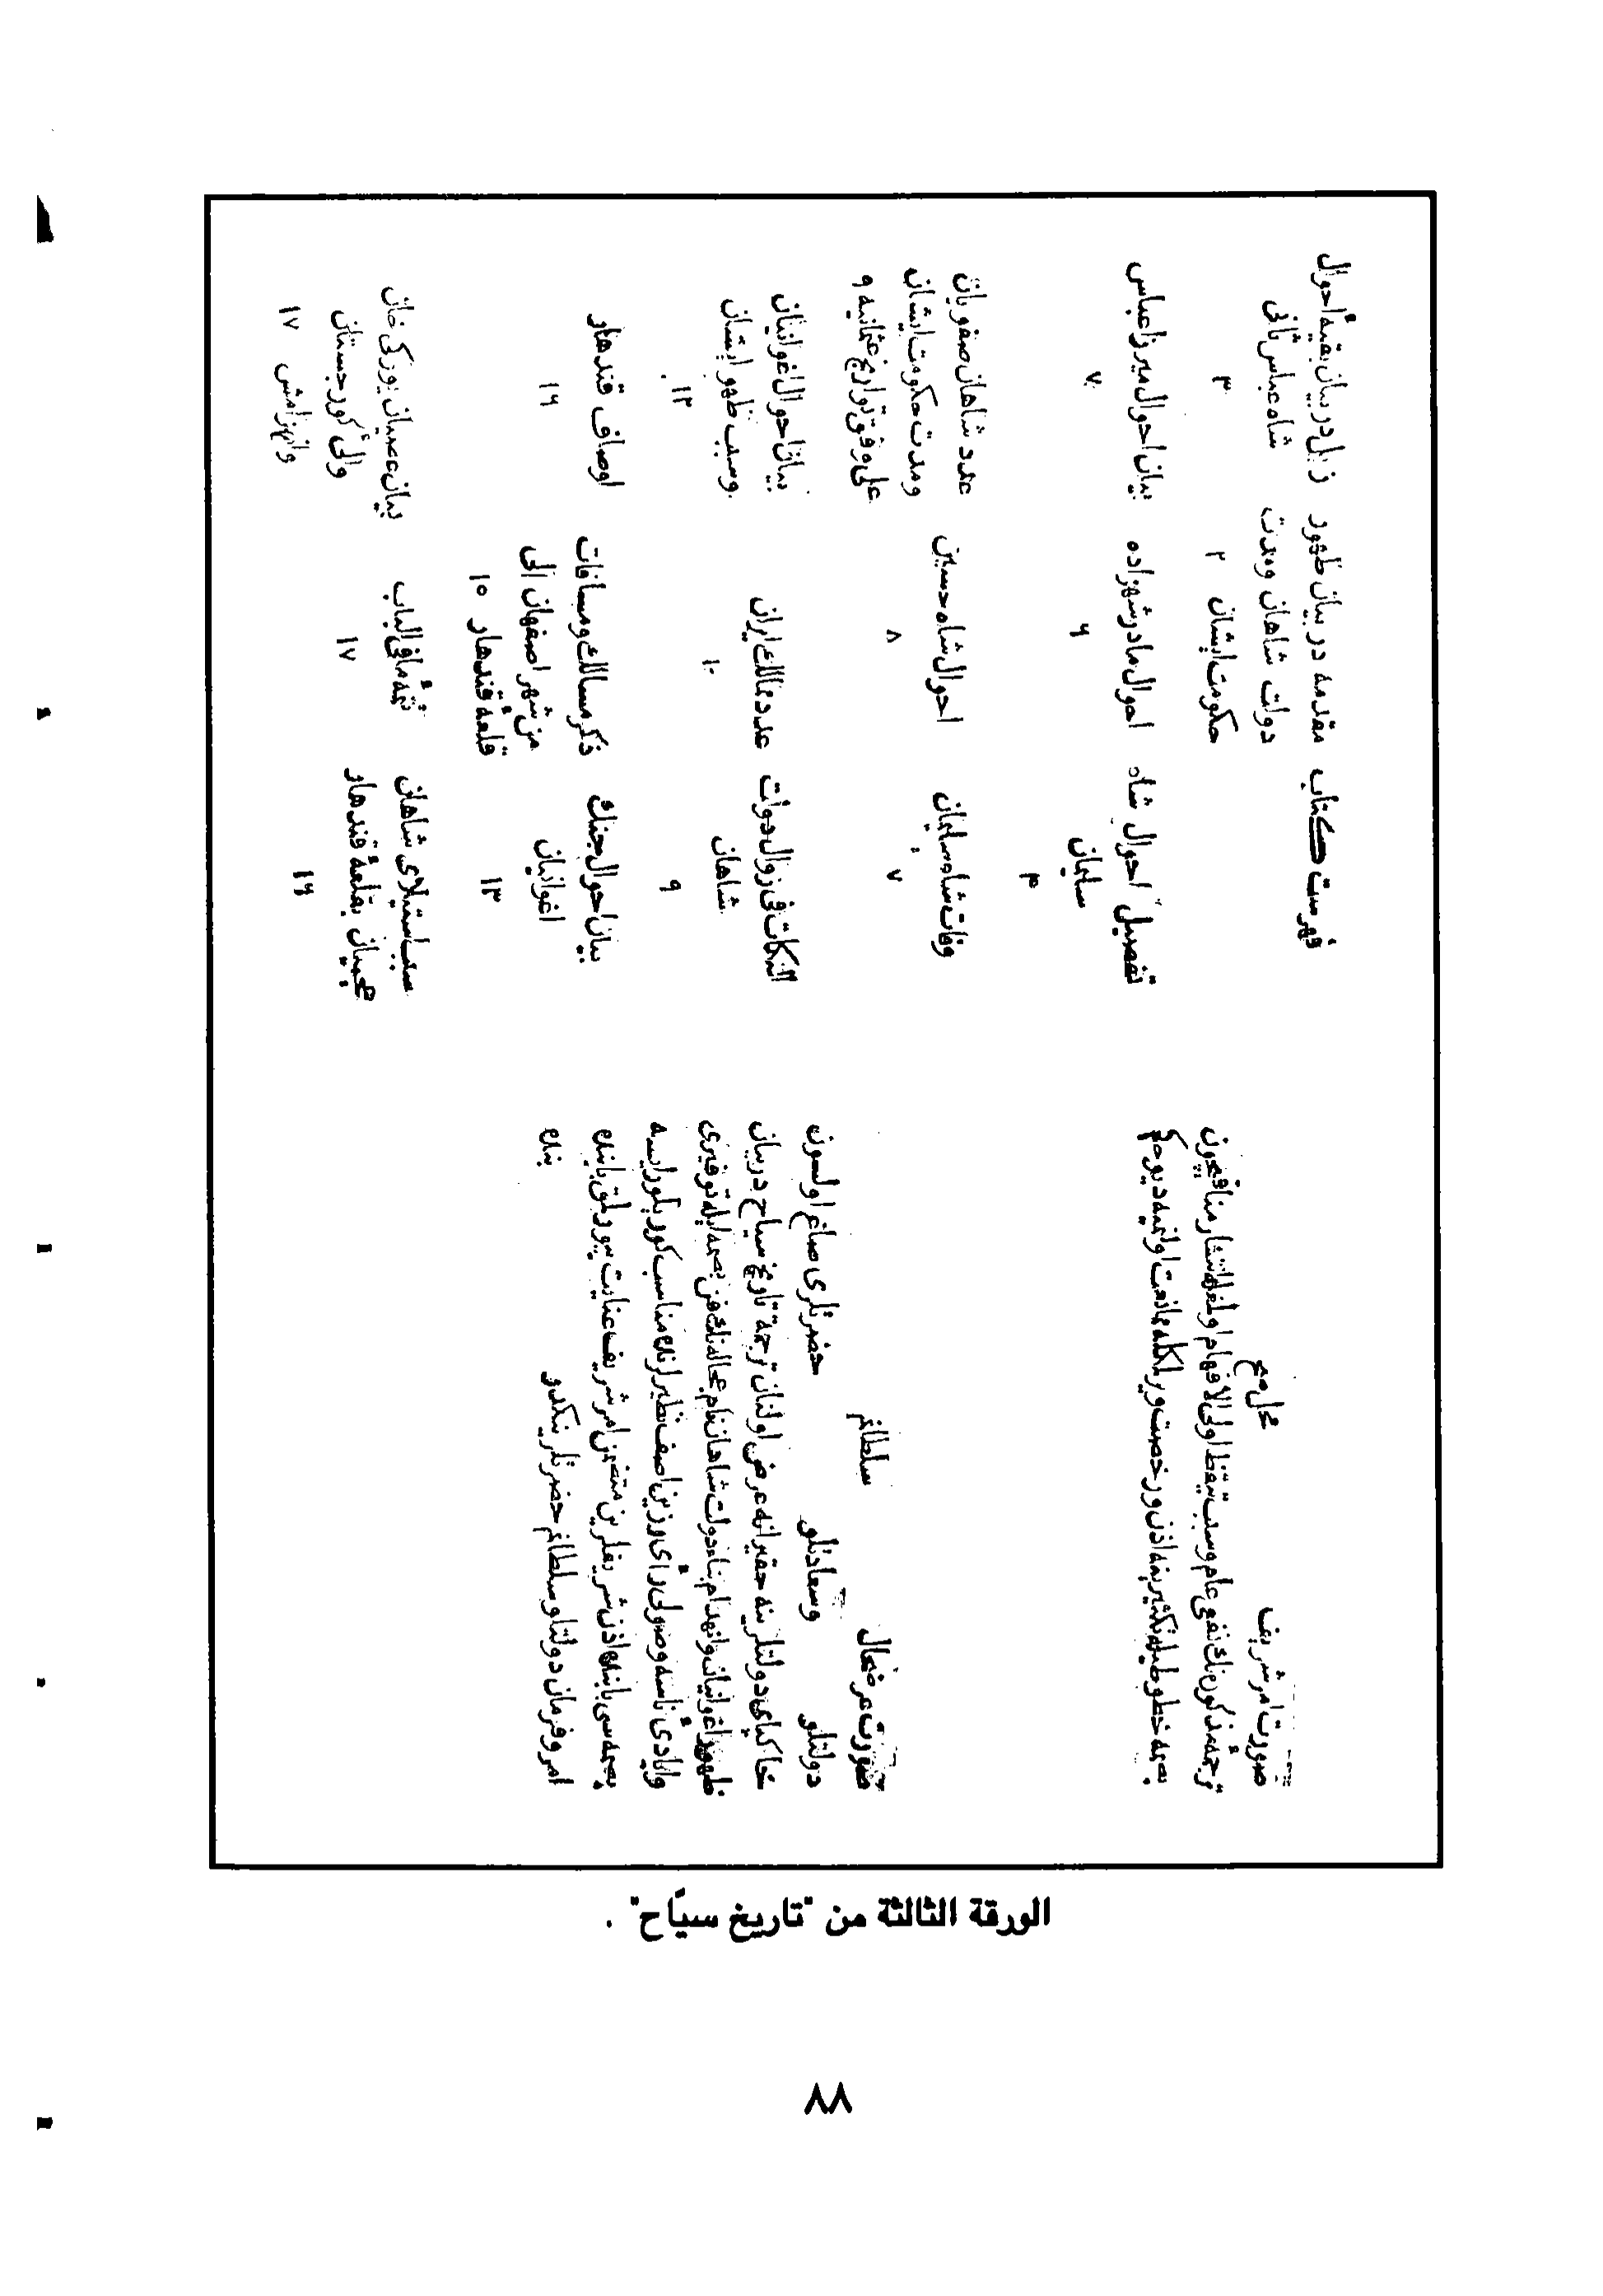 صورت امر شريف
محل صح
ترجمهٔ مذكوره‌نك نفعى عام وسبب تيقظ اولى الافهام اولمغله انتشار منافعيچون
بصمه خطوطيله تكثيرينه اذن ورخصت ويرلكله ممانعت اولنميه ديو حكم
صورت عرضحال
سلطانم
دولتلو وسعادتلو حضرتلرى صاغ اولسون
خاكپاى دولتلرينه حقيرانه عرض اولنان ترجمهٔ تاريخ سياح دربيان
ظهور اغوانيان وانهدام بناء دولت شاهان نام عجاله‌نك فن بصمه ايله توفيرى
وايادىٔ ناسه وصولى رأى رزين اصف نظيرلرنده مناسب كوريلور ايسه
بصمه سى بابنده اذن شريفلرين متضمن امر شريف عنايت بيورلمق بابنده
امر وفرمان دولتلو سلطانم حضرتلرينكدر
بنده
فهرست كتاب
مقدمه در بيان ظهور دولت شاهان ومدت حكومت ايشان ٢
ذيل در بيان بقيهٔ احوال شاه عباس ثانى ٣
تفصيل احوال شاه سليمان ٣
احوال مادر شهزاده ٦
بيان احوال ميرزا عباس ٧
وفات شاه سليمان ٧
احوال شاه حسين ٨
عدد شاهان صفويان ومدت حكومت ايشان على وفق تواريخ عثمانيه ٩
النكات فى زوال دولت شاهان ٩
عدد ممالك ايران ١٠
بيان احوال اغوانيان وسبب ظهور ايشان ١٢
بيان احوال جنك اغوانيان ١٣
ذكر مسالك ومسافات من شهر اصفهان الى قلعهٔ قندهار ١٥
اوصاف قندهار ١٦
سبب استيلاى شاهان عجميان بقلعهٔ قندهار ١٦
تتمهٔ ما فى الباب ١٧
بيان عصيان يوركى خان والىٔ كورجستان وانهزامش ١٧
الورقة الثالثة من "تاريخ سيّاح" .
٨٨